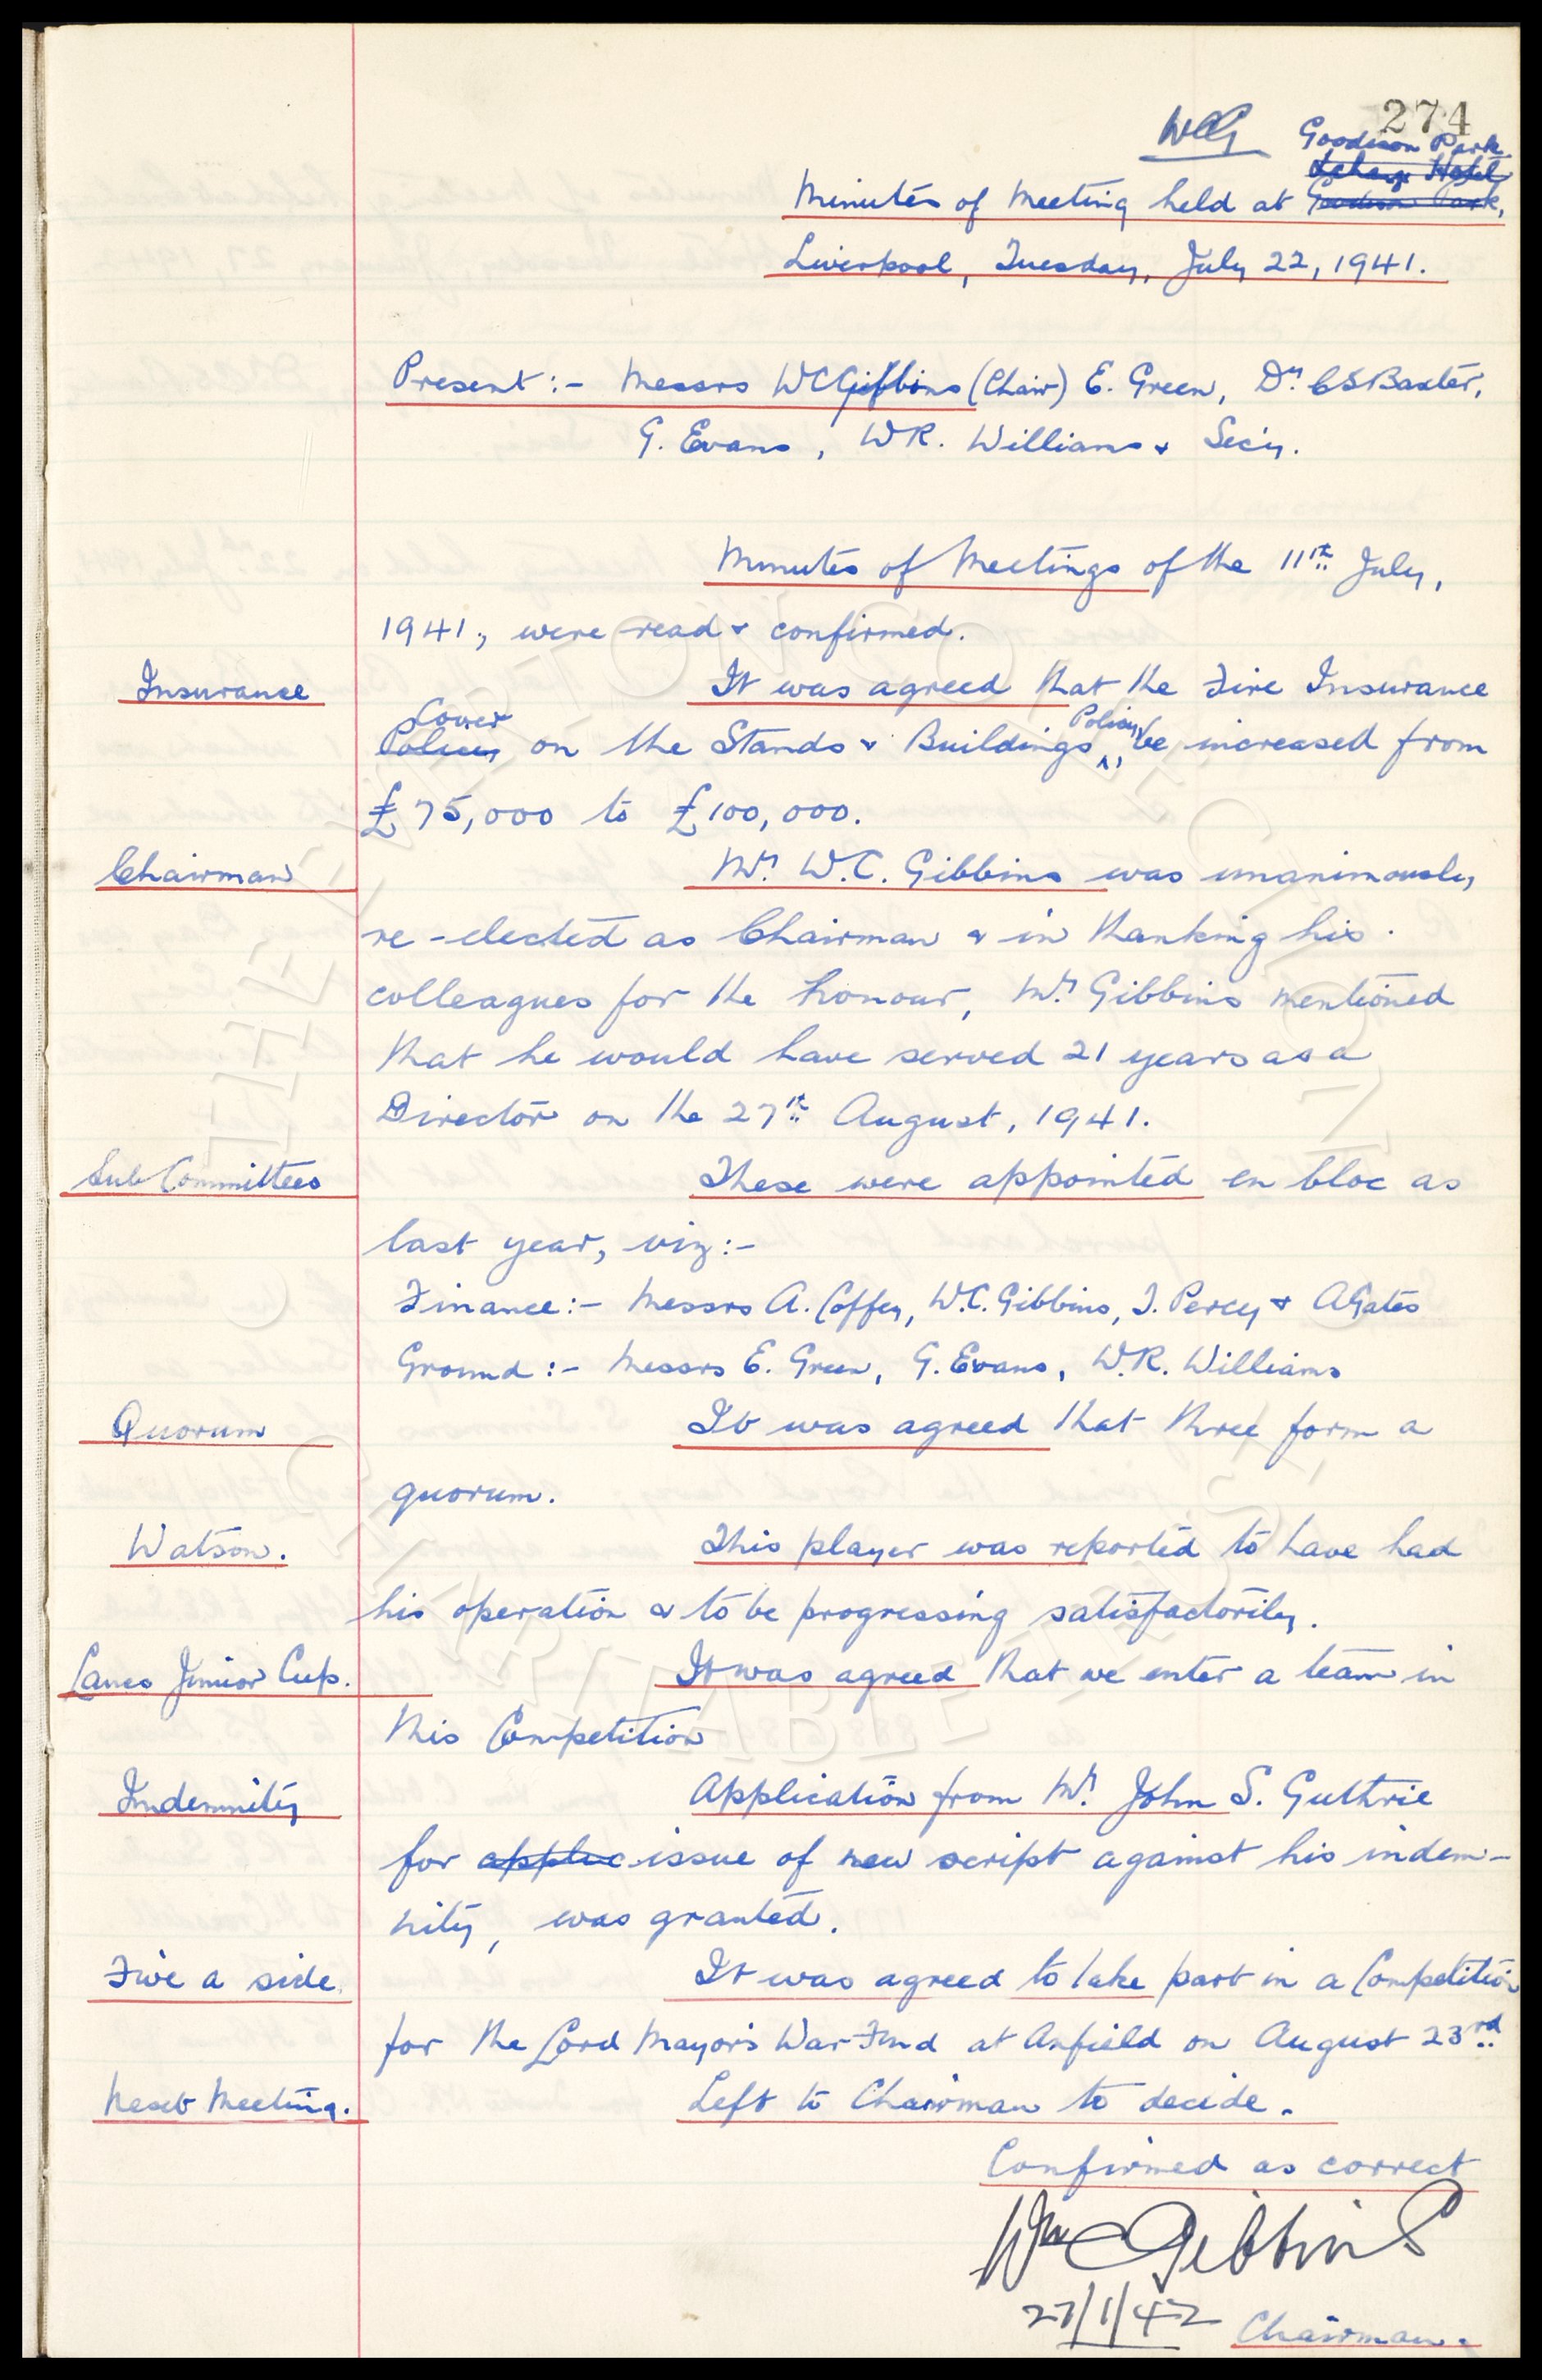 274
WCG Goodison Park
Exchange Hotel
Minutes of Meeting held at Goodison Park,
Liverpool, Tuesday, July 22, 1941.
Present :- Messrs WCGibbins (Chair) E. Green, Dr. CSBaxter,
G. Evans, WR. Williams & Sec'y.
Minutes of Meetings of the 11th July,
1941, were read & confirmed.
Insurance It was agreed that the Fire Insurance
Cover Policy
Policy on the Stands & Buildings be increased from
£75,000 to £100,000.
Chairman Mr. W.C. Gibbins was unanimously
re-elected as Chairman & in thanking his
colleagues for the honour, Mr. Gibbins mentioned
that he would have served 21 years as a
Director on the 27th August, 1941.
Sub Committees These were appointed en bloc as
last year, viz:-
Finance:- Messrs A. Coffey, W.C. Gibbins, T. Percy & AGates
Ground:- Messrs E. Green, G. Evans, W.R. Williams
Quorum It was agreed that three form a
quorum.
Watson. This player was reported to have had
his operation & to be progressing satisfactorily.
Lancs Junior Cup. It was agreed that we enter a team in
this Competition
Indemnity Application from Mr. John S. Guthrie
for applic issue of new script against his indem-
nity, was granted.
Five a side. It was agreed to take part in a Competition
for the Lord Mayor's War Fund at Anfield on August 23rd
Next Meeting. Left to Chairman to decide.
Confirmed as correct
Wm C Gibbins
27/1/42 Chairman.